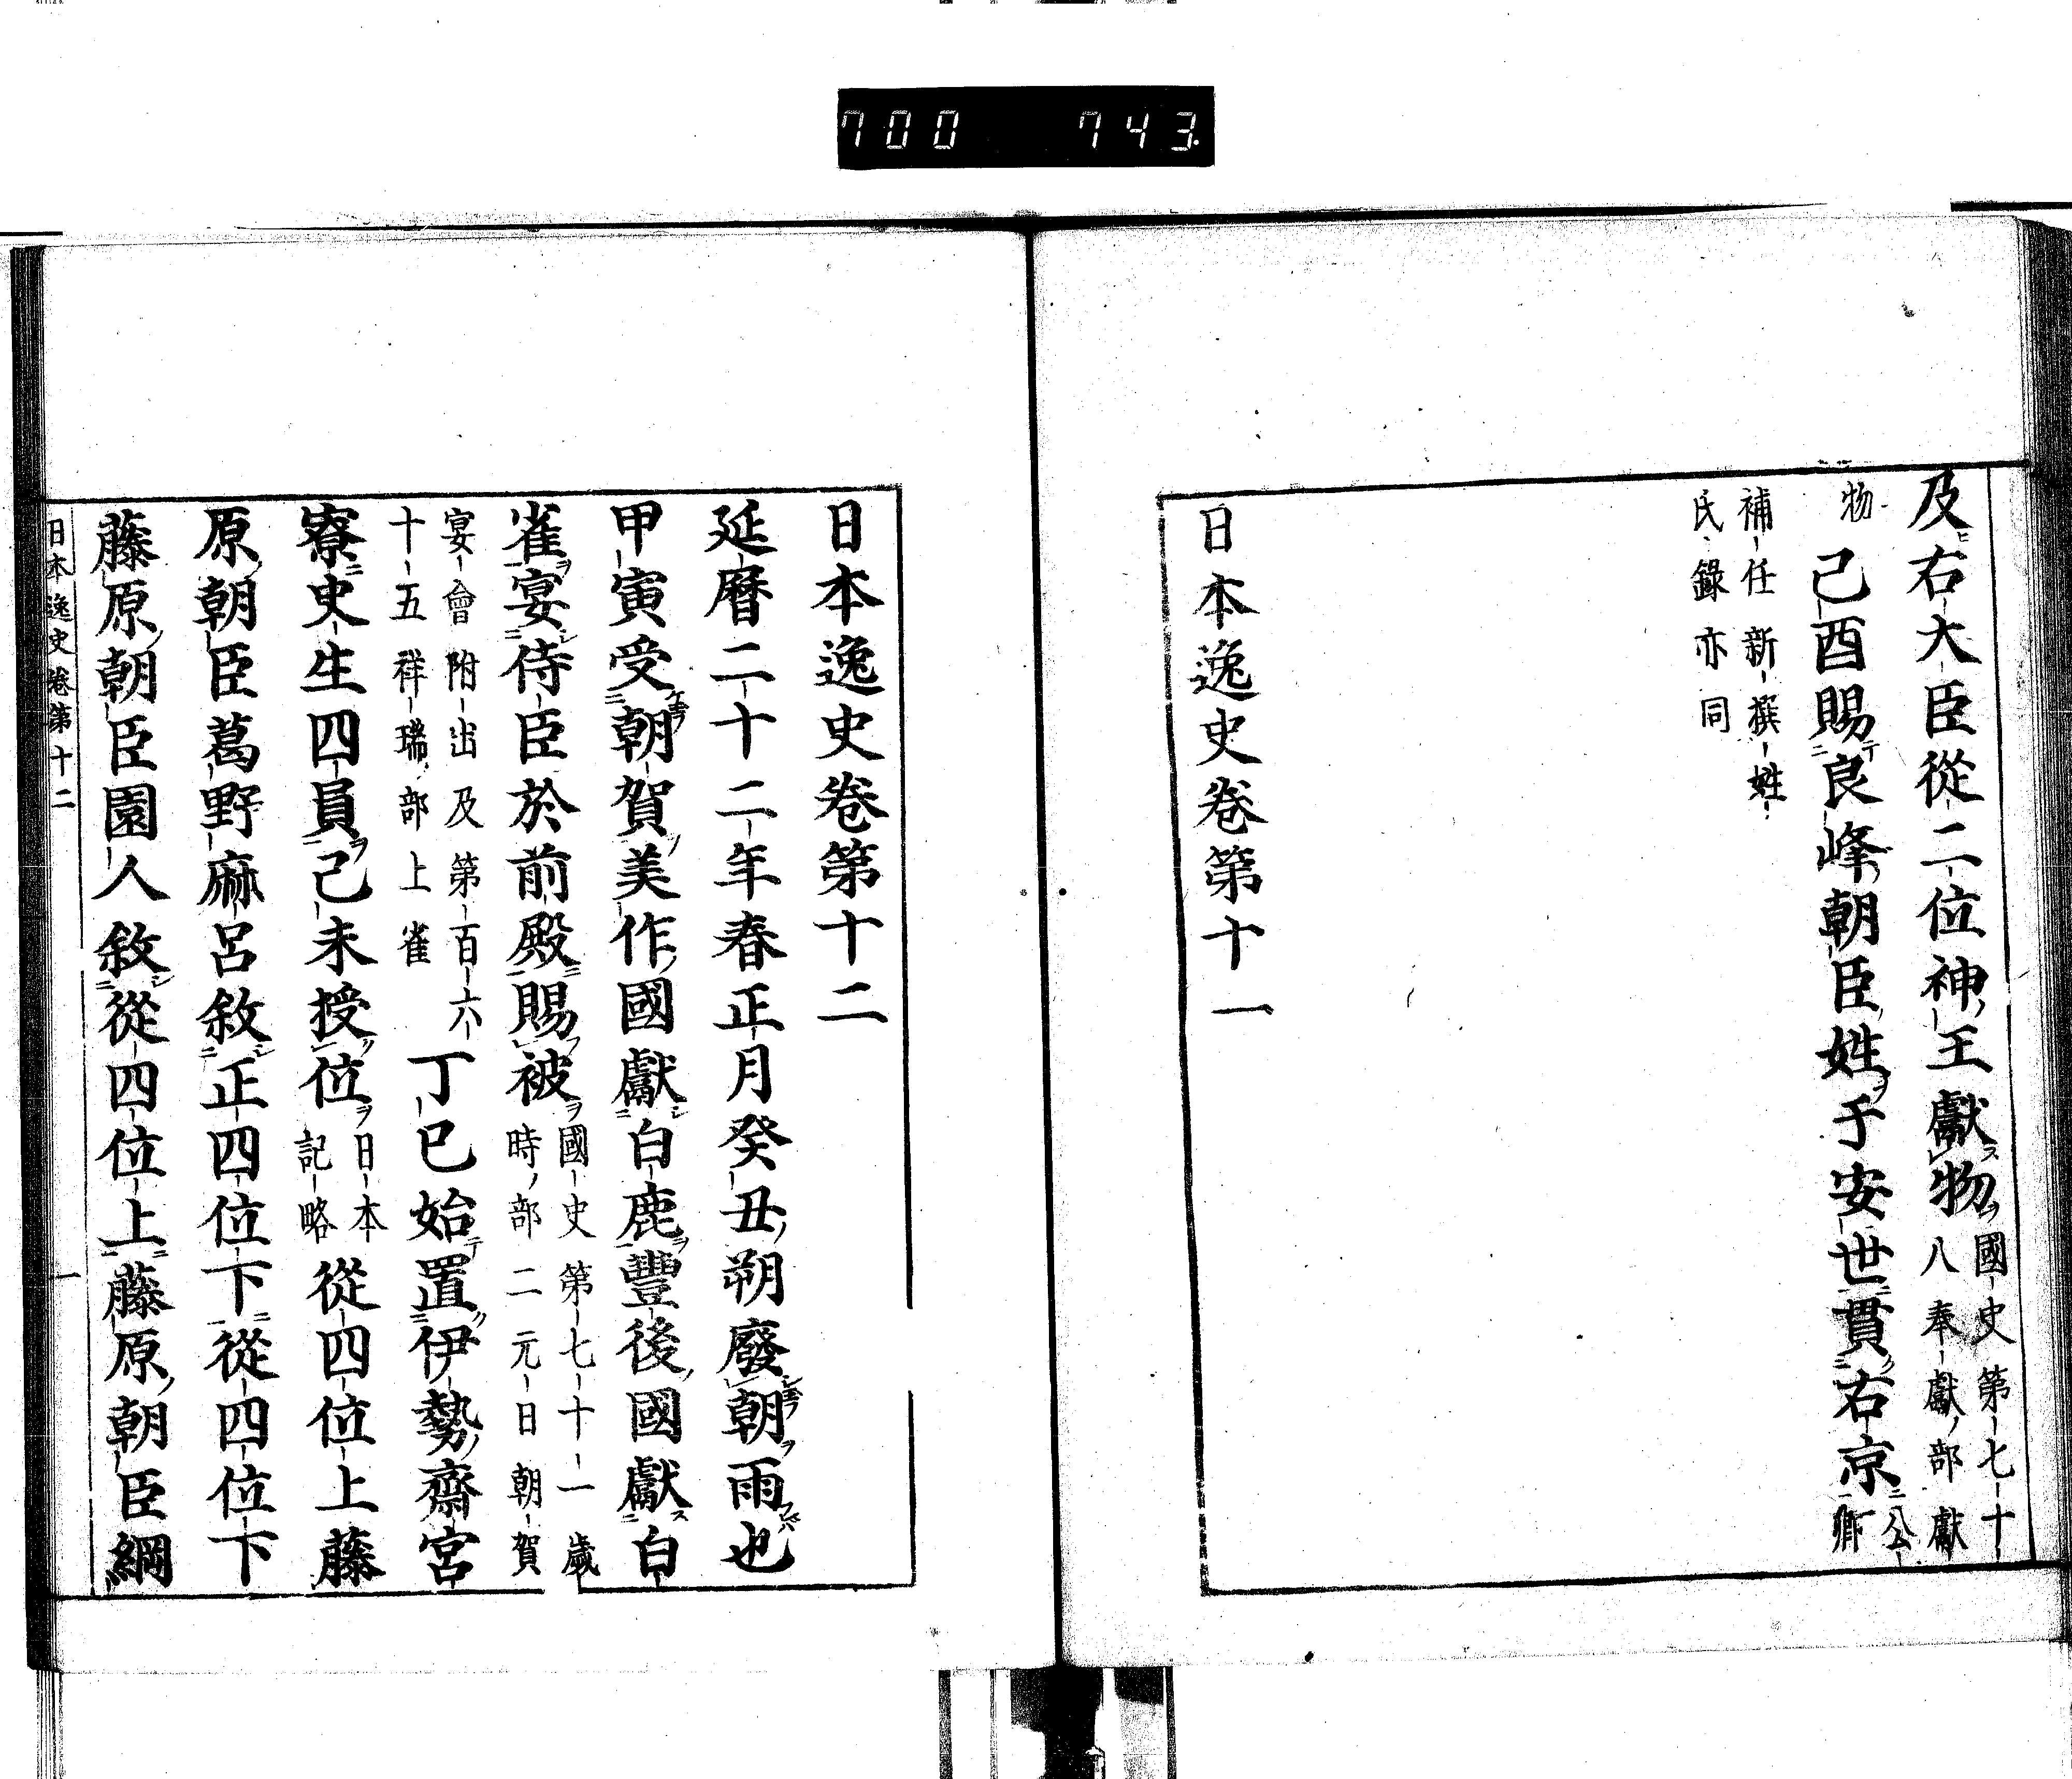 700 743
及右大臣從二位神王獻物國史第七十八奉獻部獻
物己酉賜良峰朝臣姓于安世貫右京公卿
補任新撰姓氏錄亦同
日本逸史卷第十一
日本逸史卷第十二
延曆二十二年春正月癸丑朔廢朝雨也
甲寅受朝賀美作國獻白鹿豐後國獻白
雀宴侍臣於前殿賜被國史第七十一歲時部二元日朝賀
宴會附出及第百六十五祥瑞部上雀丁巳始置伊勢齋宮
寮史生四員己未授位日本記略從四位上藤
原朝臣葛野麻呂敘正四位下從四位下
藤原朝臣園人敘從四位上藤原朝臣綱
日本逸史卷第十二 一